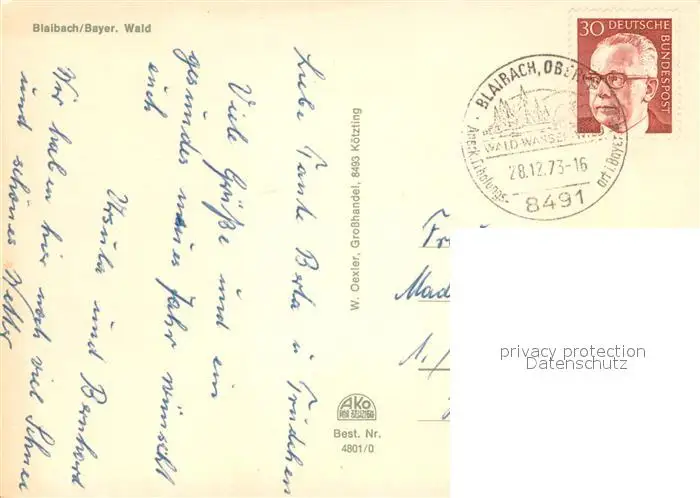 Blaibach/Bayer. Wald
Liebe Tante Berta u Trudchen
Viele Grüße und ein
gesundes neues Jahr wünscht
euch
Ursula und Bernhard
Wir haben hier noch viel Schnee
und schönes Wetter
W. Oexler, Großhandel, 8493 Kötzting
AKO
Best. Nr.
4801/0
30 DEUTSCHE
BUNDESPOST
BLAIBACH, OBER
WALD-WASSER-WIESEN
28.12.73-16
Anerk. Erholungs-
ort i. Bayer.
8491
Mad
privacy protection
Datenschutz